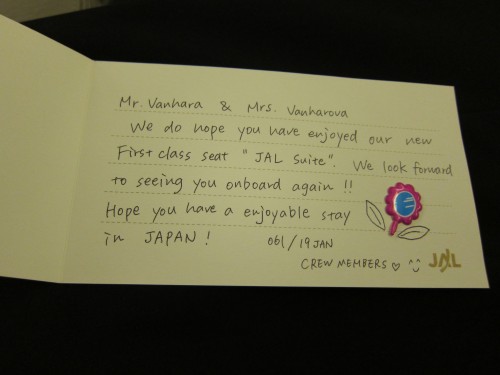 Mr. Vanhara & Mrs. Vanharova
We do hope you have enjoyed our new
First class seat "JAL Suite". We look forward
to seeing you onboard again !!
Hope you have a enjoyable stay
in JAPAN !
061/19JAN
CREW MEMBERS ♡ ^^ JAL